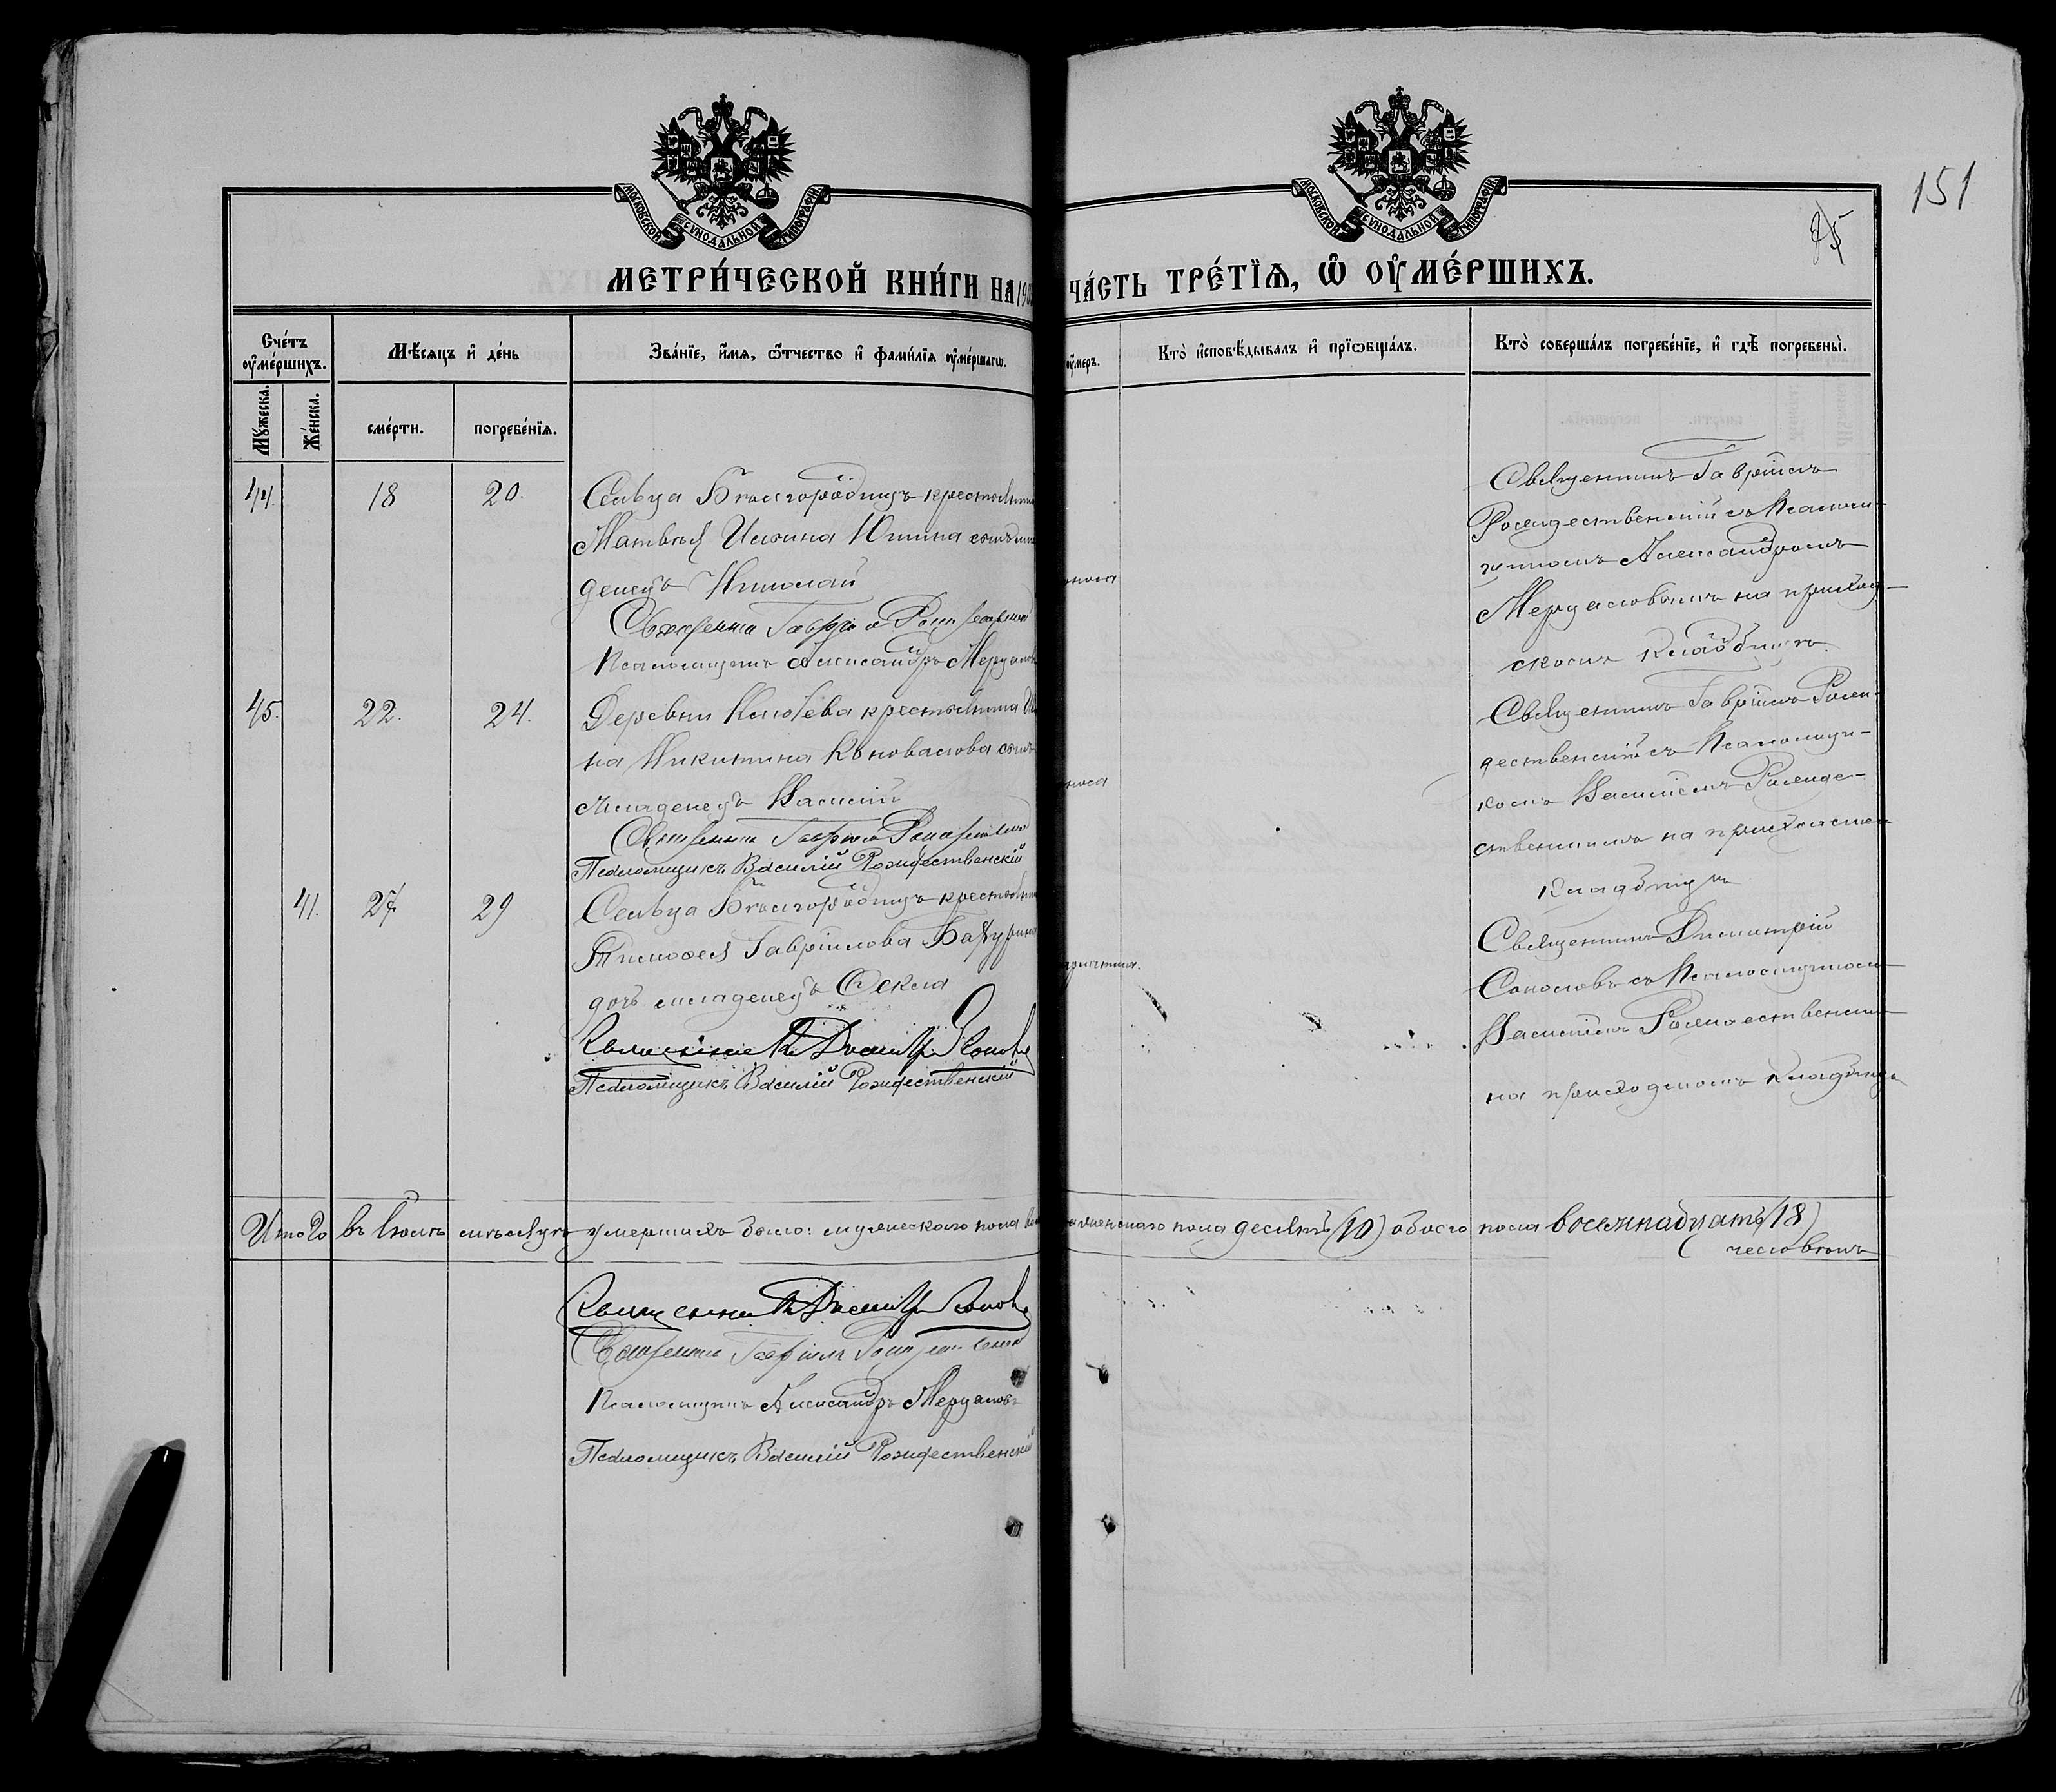 МОСКОВСКОЙ СѴНОДАЛЬНОЙ ТИПОГРАФІИ
МОСКОВСКОЙ СѴНОДАЛЬНОЙ ТИПОГРАФІИ
151
МЕТРИ́ЧЕСКОЙ КНИ́ГИ НА 190
ЧА́СТЬ ТРЕ́ТІѦ, Ѡ҆ ОУ҆МЕ́РШИХЪ.
Сче́тъ оу҆ме́ршихъ.
Мѣ́сяцъ и҆ де́нь
Зва́нїе, и҆́мѧ, ѻ҆́тчество и҆ фами́лїѧ оу҆ме́ршагѡ.
оу҆́меръ.
Кто̀ и҆сповѣ́дывалъ и҆ прїѡбща́лъ.
Кто̀ соверша́лъ погребе́нїе, и҆ гдѣ̀ погребены̀.
Мꙋ́жеска.
Же́нска.
сме́рти.
погребе́нїѧ.
44. 18 20. Сельца Благородицъ крестьянина
Матвѣя Ильина Юшина сынъ мла
денецъ Николай
Священникъ Гавріилъ Рождественскій
Псаломщикъ Александръ Мерцаловъ
Священникъ Гавріилъ
Рождественскій съ Псаломщи-
комъ Александромъ
Мерцаловымъ на приход-
скомъ кладбищѣ.
45. 22. 24. Деревни крестьянина
на Никитина Коновалова сынъ
младенецъ Василій
Священникъ Гавріилъ Рождественскій
Псаломщикъ Василій Рождественскій
поноса
Священникъ Гавріилъ Рожде-
дественскій съ Псаломщи-
комъ Василіемъ Рожде-
ственскимъ на приходском
кладбищѣ
41. 27 29 Сельца Благородицъ крестьянина
Тимоѳея Гавріилова
дочь младенецъ Ѳекла
Священникъ Димитрій Соколовъ
Псаломщикъ Василій Рождественскій
Священникъ Димитрій
Соколовъ съ Псаломщикомъ
Василіемъ Рождественским
на приходскомъ кладбищѣ
Итого въ Іюлѣ мѣсяцѣ умершихъ было: мужескаго пола
женскаго пола десять (10) обоего пола восемнадцать (18)
человѣкъ
Священникъ Димитрій Соколовъ
Священникъ Гавріилъ Рождественскій
Псаломщикъ Александръ Мерцаловъ
Псаломщикъ Василій Рождественскій